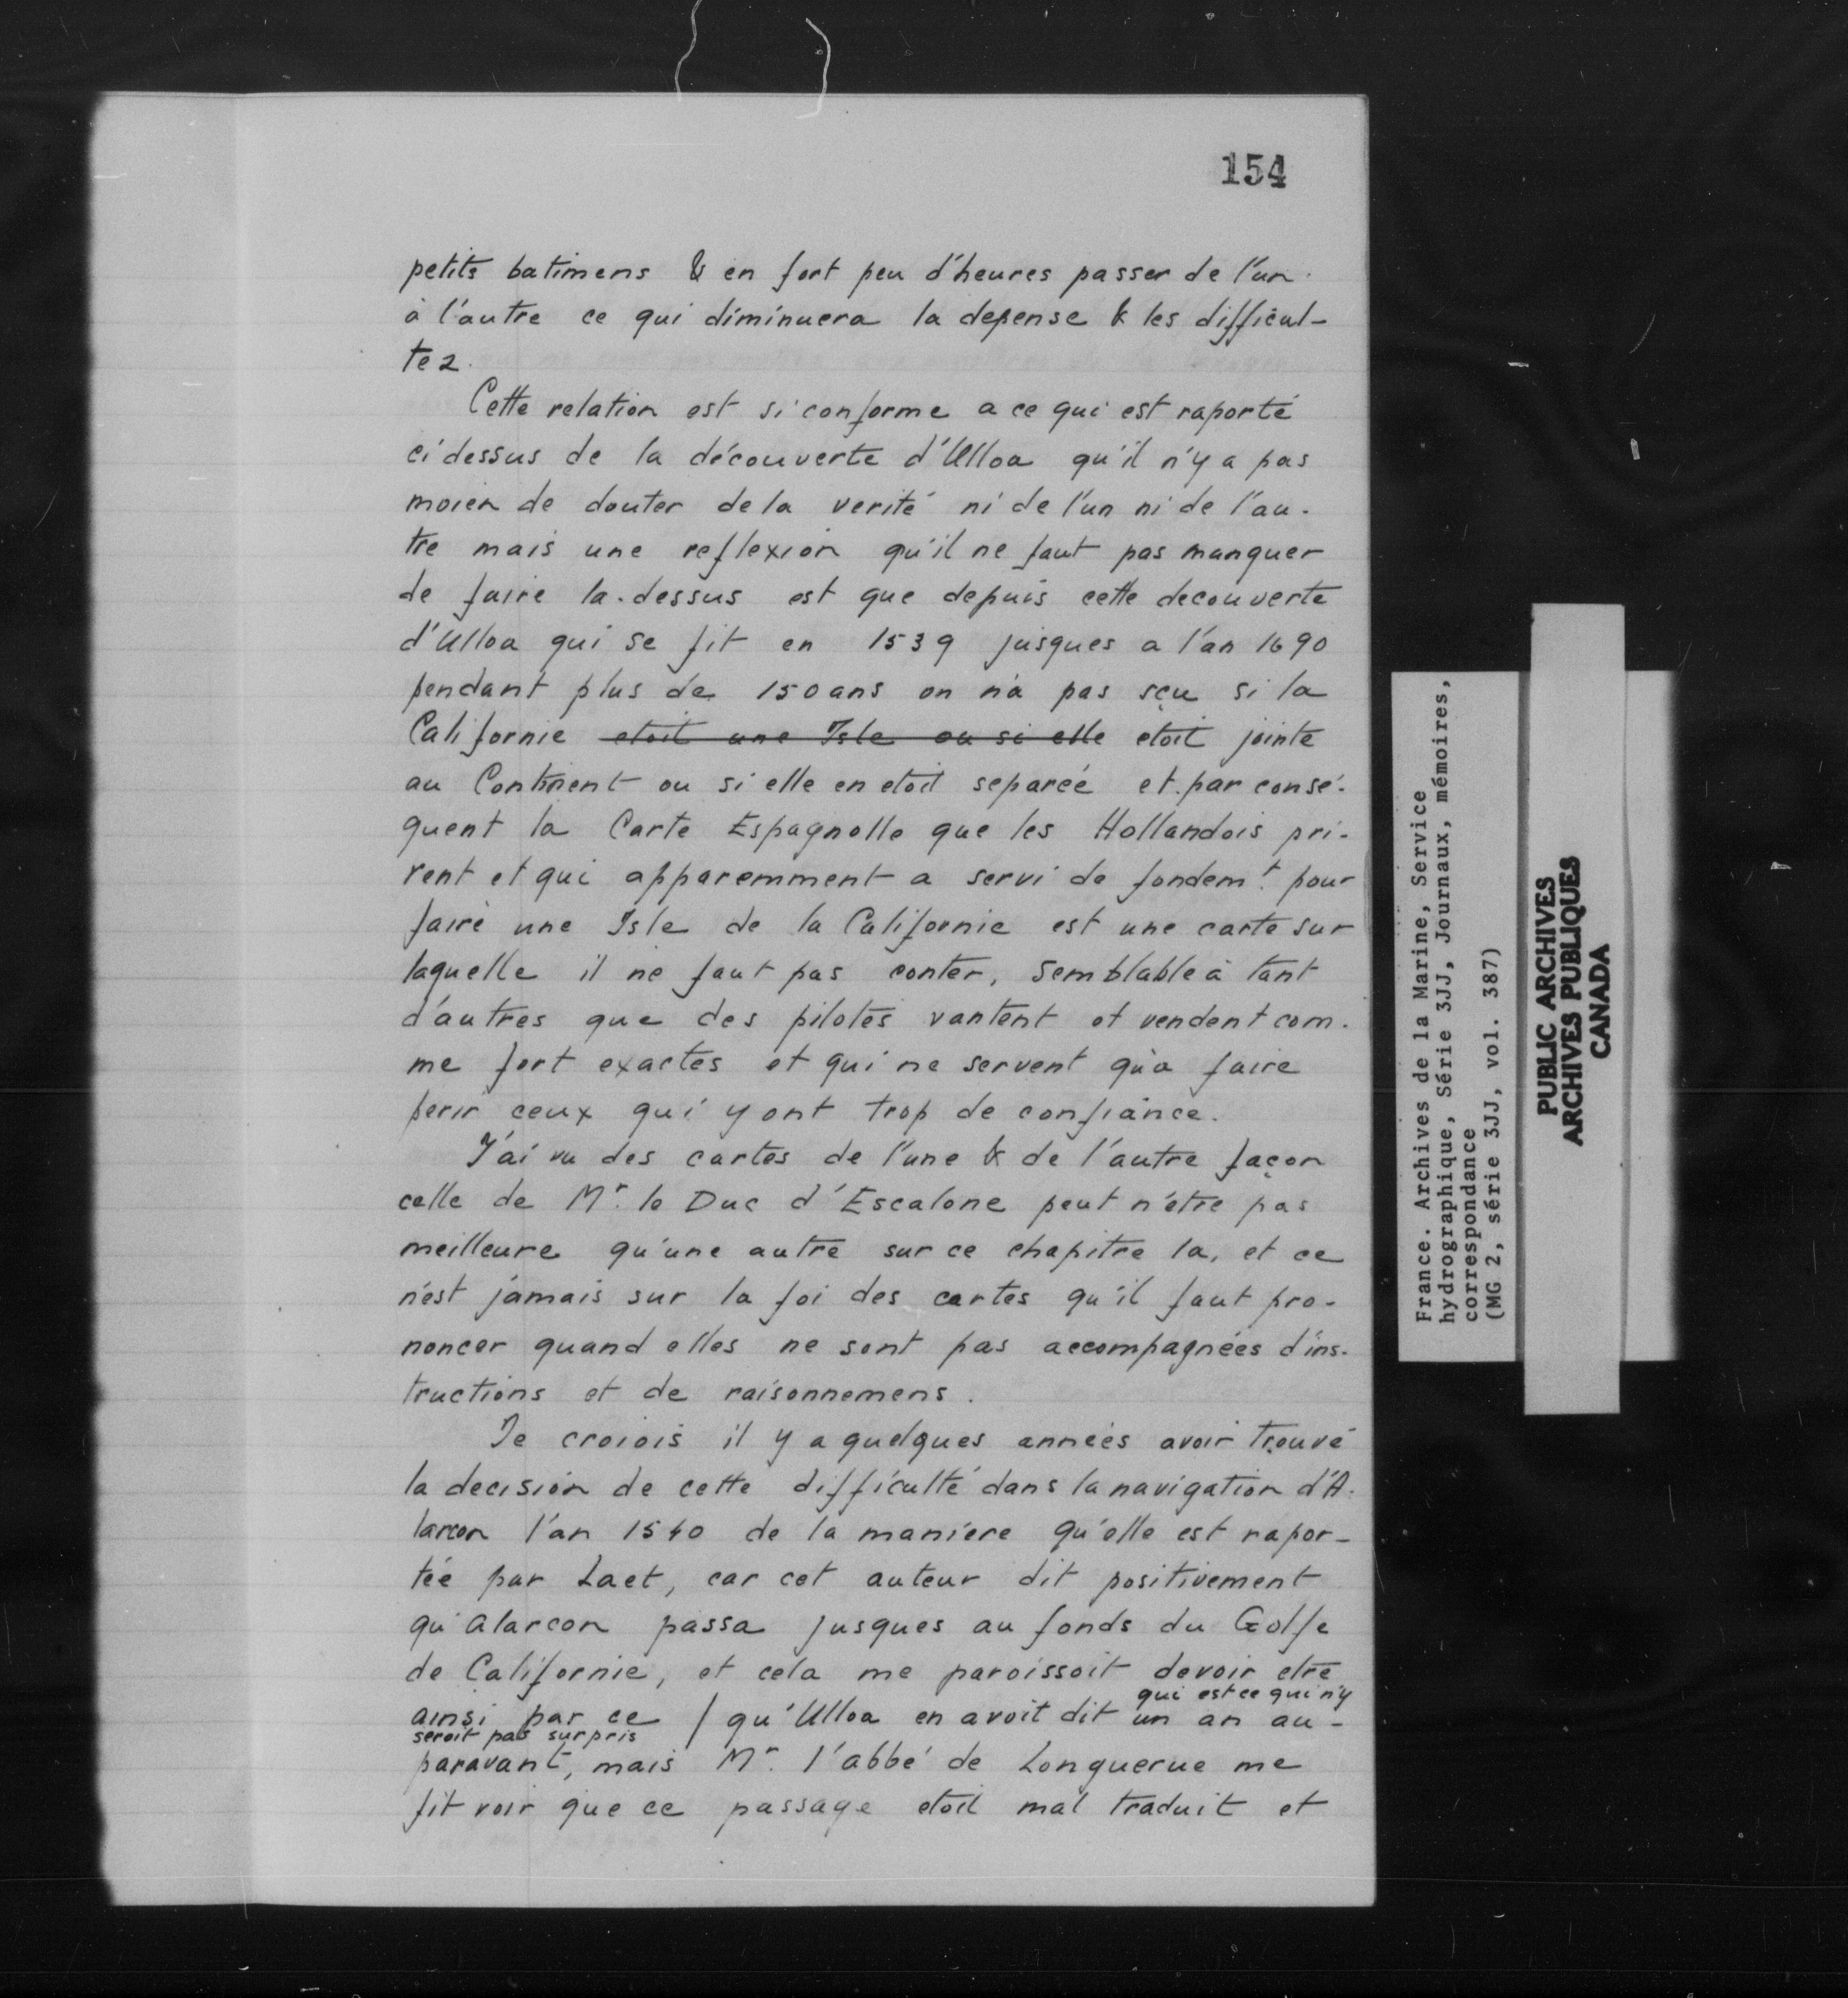 154
petits batimens & en fort peu d'heures passer de l'un
à l'autre ce qui diminuera la depense & les difficul-
tez.
Cette relation est si conforme a ce qui est raporté
ci dessus de la découverte d'Ulloa qu'il n'y a pas
moien de douter de la verité ni de l'un ni de l'au-
tre mais une reflexion qu'il ne faut pas manquer
de faire la-dessus est que depuis cette decouverte
d'Ulloa qui se fit en 1539 jusques a l'an 1690
pendant plus de 150 ans on n'a pas sçu si la
Californie etoit une Isle ou si elle etoit jointe
au Continent ou si elle en etoit separée et par consé-
quent la Carte Espagnolle que les Hollandois pri-
rent et qui apparemment a servi de fondemt. pour
faire une Isle de la Californie est une carte sur
laquelle il ne faut pas conter, semblable à tant
d'autres que des pilotes vantent et vendent com-
me fort exactes et qui ne servent qu'a faire
perir ceux qui y ont trop de confiance.
J'ai vu des cartes de l'une & de l'autre façon
celle de Mr. le Duc d'Escalone peut n'être pas
meilleure qu'une autre sur ce chapitre la, et ce
n'est jamais sur la foi des cartes qu'il faut pro-
noncer quand elles ne sont pas accompagnées d'ins-
tructions et de raisonnemens.
Je croiois il y a quelques années avoir trouvé
la decision de cette difficulté dans la navigation d'A-
larcon l'an 1540 de la maniere qu'elle est rapor-
tée par Laet, car cet auteur dit positivement
qu'Alarcon passa jusques au fonds du Golfe
de Californie, et cela me paroissoit devoir etre
qui est ce qui n'y
ainsi par ce / qu'Ulloa en avoit dit un an au-
seroit pas surpris
paravant, mais Mr. l'abbé de Longuerue me
fit voir que ce passage etoit mal traduit et
France. Archives de la Marine, Service
hydrographique, Série 3JJ, Journaux, mémoires,
correspondance
(MG 2, série 3JJ, vol. 387)
PUBLIC ARCHIVES
ARCHIVES PUBLIQUES
CANADA